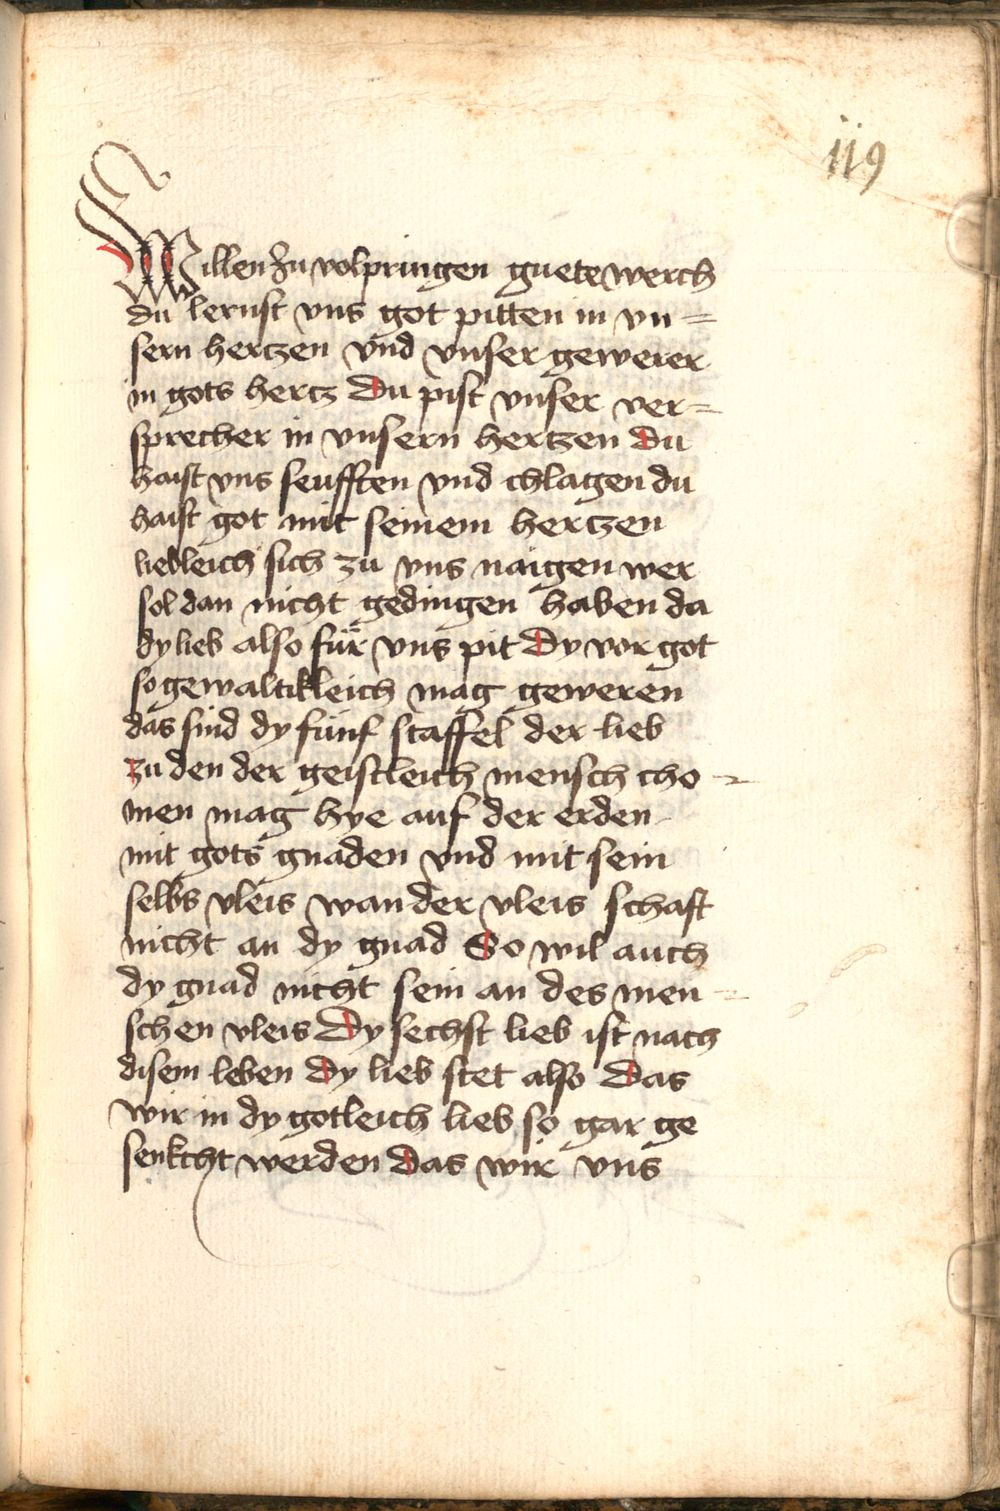 119
Willen zu volpringen guete werch
du lernst vns got pitten in vn=
sern hertzen vnd vnser gewerer
in gots hertz Du pist vnser ver=
sprecher in vnsern hertzen Du
haist vns seufften vnd chlagen du
haist got mit seinem hertzen
liebleich sich zu vns naigen wer
sol dan nicht gedingen haben da
dy lieb also für vns pit Dy vor got
so gewaltikleich mag geweren
das sind dy fünf staffel der lieb
zu den der geistleich mensch cho-
men mag hye auf der erden
mit gots gnaden vnd mit sein
selbs vleis wan der vleis schaft
nicht an dy gnad So wil auch
dy gnad nicht sein an des men-
schen vleis Dy sechst lieb ist nach
disem leben Dy lieb stet also Das
wir in dy gotleich lieb so gar ge
senkcht werden Das wir vns